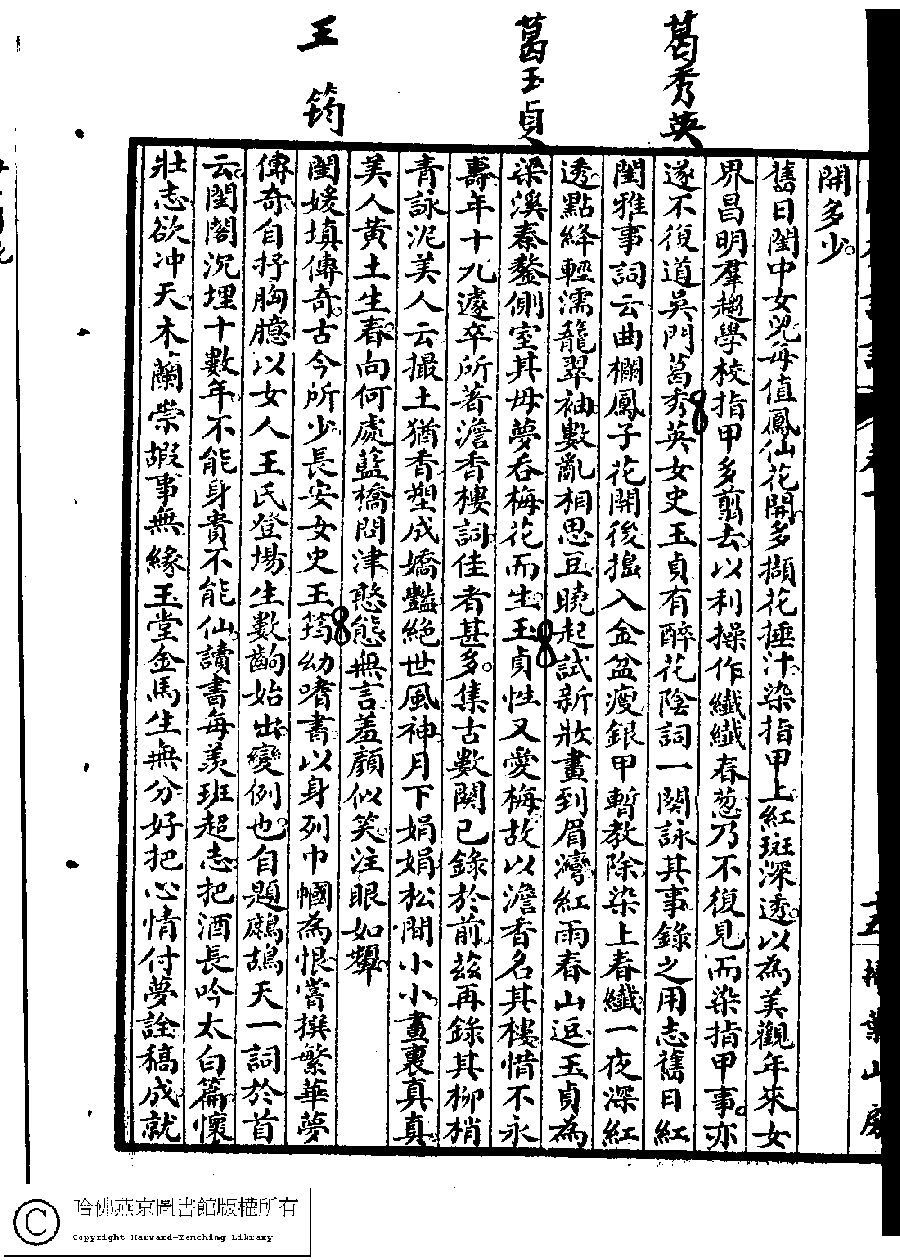 葛秀英
葛玉貞
王筠
開多少。
舊日閨中女兒每值鳳仙花開多擷花捶汁染指甲上紅斑深透以為美觀年來女
界昌明羣趨學校指甲多翦去以利操作纖纖春葱乃不復見而染指甲事亦
遂不復道吳門葛秀英女史玉貞有醉花陰詞一闋詠其事錄之用志舊日紅
閨雅事詞云曲欄鳳子花開後搗入金盆瘦銀甲暫教除染上春纖一夜深紅
透點絳輕濡籠翠袖數亂相思豆曉起試新妝畫到眉灣紅雨春山逗玉貞為
梁溪秦鏊側室其母夢吞梅花而生玉貞性又愛梅故以澹香名其樓惜不永
壽年十九遽卒所著澹香樓詞佳者甚多。集古數闋已錄於前茲再錄其柳梢
青詠泥美人云撮土猶香塑成嬌豔絕世風神月下娟娟松間小小畫裏真真
美人黃土生春向何處藍橋問津憨態無言羞顏似笑注眼如顰
閨媛填傳奇古今所少長安女史王筠幼嗜書以身列巾幗為恨嘗撰繁華夢
傳奇自抒胸臆以女人王氏登場生數齣始出變例也自題鷓鴣天一詞於首
云閨閣沉埋十數年不能身貴不能仙讀書每羨班超志把酒長吟太白篇懷
壯志欲冲天木蘭崇嘏事無緣玉堂金馬生無分好把心情付夢詮稿成就
哈佛燕京圖書館版權所有
Copyright Harvard-Yenching Library